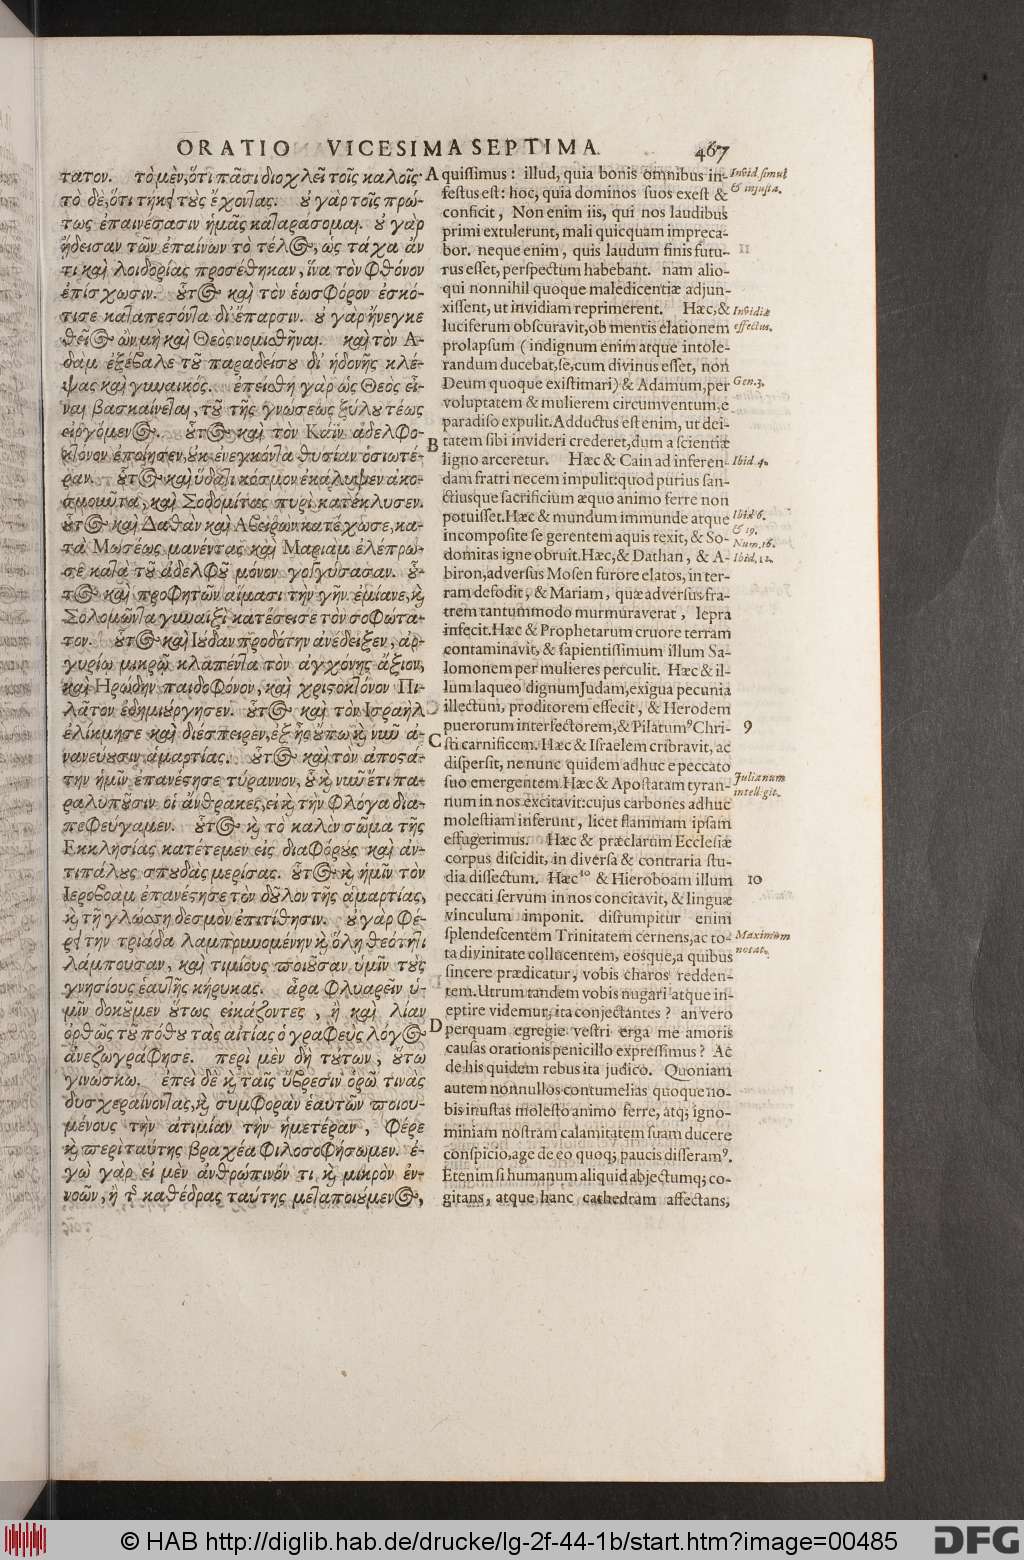 ORATIO VICESIMA SEPTIMA.
467
τατον. τὸ μὲν, ὅτι πᾶσι διοχλεῖ τοῖς καλοῖς·
τὸ δὲ, ὅτι τήκει τοὺς ἔχοντας. οὐ γὰρ τοῖς πρώ-
τως ἐπαινέσασιν ἡμᾶς καταράσομαι. οὐ γὰρ
ᾔδεισαν τῶν ἐπαίνων τὸ τέλος, ὡς τάχα ἄν
τι καὶ λοιδορίας προσέθηκαν, ἵνα τὸν φθόνον
ἐπίσχωσιν. οὗτος καὶ τὸν ἑωσφόρον ἐσκό-
τισε καταπεσόντα δι' ἔπαρσιν. οὐ γὰρ ἤνεγκε
θεῖος ὢν, μὴ καὶ Θεὸς νομισθῆναι. καὶ τὸν Α-
δὰμ ἐξέβαλε τοῦ παραδείσου δι' ἡδονῆς κλέ-
ψας καὶ γυναικός. ἐπείσθη γὰρ ὡς Θεὸς εἶ-
ναι βασκαίνεται, τοῦ τῆς γνώσεως ξύλου τέως
εἰργόμενος. οὗτος καὶ τὸν Κάϊν ἀδελφο-
κτόνον ἐποίησεν, οὐκ ἐνεγκόντα θυσίαν ὁσιωτέ-
ραν. οὗτος καὶ ὕδατι κόσμον ἐκάλυψεν ἀκο-
σμοῦντα, καὶ Σοδομίτας πυρὶ κατέκλυσεν.
οὗτος καὶ Δαθὰν καὶ Αβειρὼν κατέχωσε, κα-
τὰ Μωσέως μανέντας καὶ Μαριὰμ ἐλέπρω-
σε κατὰ τοῦ ἀδελφοῦ μόνον γογγύσασαν. οὗ-
τος καὶ προφητῶν αἵμασι τὴν γῆν ἐμίανε, καὶ
Σολομῶντα γυναιξὶ κατέσεισε τὸν σοφώτα-
τον. οὗτος καὶ Ιούδαν προδότην ἀνέδειξεν, ἀρ-
γυρίῳ μικρῷ κλαπέντα τὸν ἀγχόνης ἄξιον,
καὶ Ηρώδην παιδοφόνον, καὶ χριστοκτόνον Πι-
λᾶτον ἐδημιούργησεν. οὗτος καὶ τὸν Ισραὴλ
ἐλίκμησε καὶ διέσπειρεν, ἐξ ἧς οὔπω καὶ νῦν ἀ-
νανεύουσιν ἁμαρτίας. οὗτος καὶ τὸν ἀποστά-
την ἡμῖν ἐπανέστησε τύραννον, οὗ καὶ νῦν ἔτι πα-
ραλυποῦσιν οἱ ἄνθρακες, εἰ καὶ τὴν φλόγα δια-
πεφεύγαμεν. οὗτος καὶ τὸ καλὸν σῶμα τῆς
Εκκλησίας κατέτεμεν εἰς διαφόρους καὶ ἀν-
τιπάλους σπουδὰς μερίσας. οὗτος καὶ ἡμῖν τὸν
Ιεροβοὰμ ἐπανέστησε τὸν δοῦλον τῆς ἁμαρτίας,
καὶ τῇ γλώσσῃ δεσμὸν ἐπιτίθησιν. οὐ γὰρ φέ-
ρει τὴν τριάδα λαμπρυνομένην καὶ ὅλῃ θεότητι
λάμπουσαν, καὶ τιμίους ποιοῦσαν ὑμῖν τοὺς
γνησίους ἑαυτῆς κήρυκας. ἆρα φλυαρεῖν ὑ-
μῖν δοκοῦμεν οὕτως εἰκάζοντες, ἢ καὶ λίαν
ὀρθῶς τοῦ πόθου τὰς αἰτίας ὁ γραφεὺς λόγος
ἀνεζωγράφησε. περὶ μὲν δὴ τούτων, οὕτω
γινώσκω. ἐπεὶ δὲ καὶ ταῖς ὕβρεσιν ὁρῶ τινὰς
δυσχεραίνοντας, καὶ συμφορὰν ἑαυτῶν ποιου-
μένους τὴν ἀτιμίαν τὴν ἡμετέραν, φέρε
καὶ περὶ ταύτης βραχέα φιλοσοφήσωμεν. ἐ-
γὼ γὰρ εἰ μὲν ἀνθρώπινόν τι καὶ μικρὸν ἐν-
νοῶν, ἢ τῆς καθέδρας ταύτης μεταποιούμενος,
A
B
C
D
quissimus: illud, quia bonis omnibus in-
festus est: hoc, quia dominos suos exest &
conficit, Non enim iis, qui nos laudibus
primi extulerunt, mali quicquam impreca-
bor. neque enim, quis laudum finis futu-
rus esset, perspectum habebant. nam alio-
qui nonnihil quoque maledicentiæ adjun-
xissent, ut invidiam reprimerent. Hæc, &
luciferum obscuravit, ob mentis elationem
prolapsum (indignum enim atque intole-
randum ducebat, se, cum divinus esset, non
Deum quoque existimari) & Adamum, per
voluptatem & mulierem circumventum, e
paradiso expulit. Adductus est enim, ut dei-
tatem sibi invideri crederet, dum a scientiæ
ligno arceretur. Hæc & Cain ad inferen-
dam fratri necem impulit: quod purius san-
ctiusque sacrificium æquo animo ferre non
potuisset. Hæc & mundum immunde atque
incomposite se gerentem aquis texit, & So-
domitas igne obruit. Hæc, & Dathan, & A-
biron, adversus Mosen furore elatos, in ter-
ram defodit, & Mariam, quæ adversus fra-
trem tantummodo murmuraverat, lepra
infecit. Hæc & Prophetarum cruore terram
contaminavit, & sapientissimum illum Sa-
lomonem per mulieres perculit. Hæc & il-
lum laqueo dignum Judam, exigua pecunia
illectum, proditorem effecit, & Herodem
puerorum interfectorem, & Pilatum⁹ Chri-
sti carnificem. Hæc & Israelem cribravit, ac
dispersit, ne nunc quidem adhuc e peccato
suo emergentem. Hæc & Apostatam tyran-
num in nos excitavit: cujus carbones adhuc
molestiam inferunt, licet flammam ipsam
effugerimus. Hæc & præclarum Ecclesiæ
corpus discidit, in diversa & contraria stu-
dia dissectum. Hæc¹⁰ & Hieroboam illum
peccati servum in nos concitavit, & linguæ
vinculum imponit. disrumpitur enim
splendescentem Trinitatem cernens, ac to-
ta divinitate collucentem, eosque, a quibus
sincere prædicatur, vobis charos redden-
tem. Utrum tandem vobis nugari atque in-
eptire videmur, ita conjectantes? an vero
perquam egregie vestri erga me amoris
causas orationis penicillo expressimus? Ac
de his quidem rebus ita judico. Quoniam
autem nonnullos contumelias quoque no-
bis inustas molesto animo ferre, atq; igno-
miniam nostram calamitatem suam ducere
conspicio, age de eo quoq; paucis disseram⁹.
Etenim si humanum aliquid abjectumq; co-
gitans, atque hanc cathedram affectans,
Invid. simul
& injusta.
11
Invidiæ
effectus.
Gen. 3.
Ibid. 4.
Ibid. 6.
& 19.
Num. 16.
Ibid. 12.
9
Julianum
intelligit.
10
Maximum
notat.
© HAB http://diglib.hab.de/drucke/lg-2f-44-1b/start.htm?image=00485
DFG